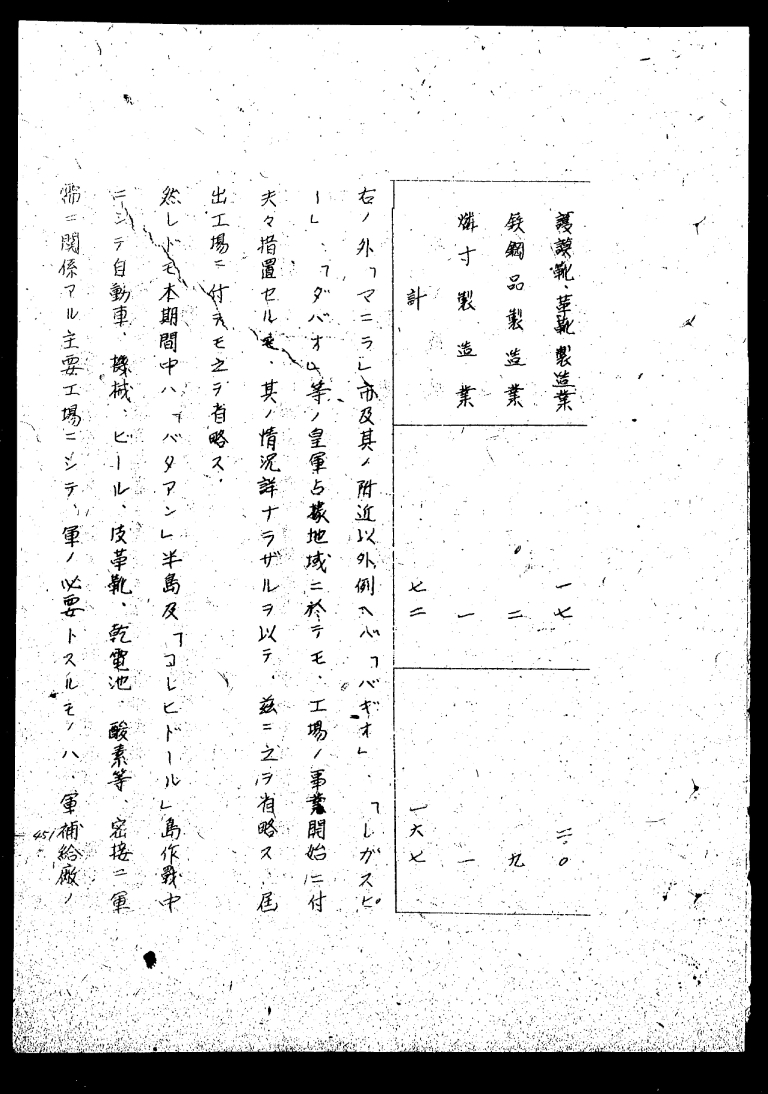 護謨靴、革靴製造業 一七 三〇
鉄鋼品製造業 二 九
燐寸製造業 一 一
計 七二 一六七
右ノ外「マニラ」市及其ノ附近以外、例ヘバ「バギオ」、「レガスピ
ー」、「ダバオ」等ノ皇軍占拠地域ニ於テモ、工場ノ事業開始ニ付
夫々措置セルモ、其ノ情況詳ナラザルヲ以テ、茲ニ之ヲ省略ス、届
出工場ニ付テモ之ヲ省略ス、
然レドモ本期間中ハ「バタアン」半島及「コレヒドール」島作戦中
ニシテ自動車、機械、ビール、皮革靴、乾電池、酸素等、密接ニ軍
需ニ関係アル主要工場ニシテ、軍ノ必要トスルモノハ、軍補給廠ノ
451